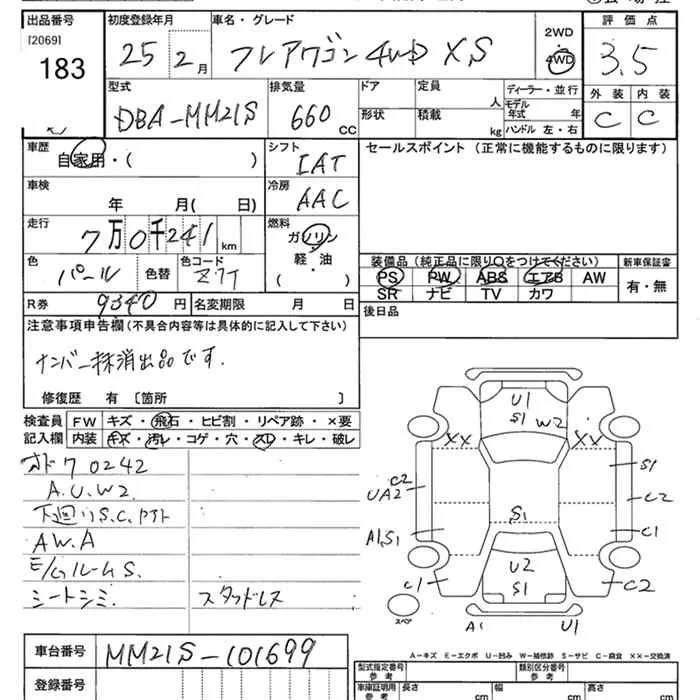 出品番号
[2069]
183
初度登録年月
25 2月
車名・グレード
フレアワゴン 4WD XS
2WD
4WD
評価点
3.5
外装 内装
C C
型式
DBA-MM21S
排気量
660 CC
ドア
形状
定員
人
積載
kg
ディーラー・並行
モデル
年式 年
ハンドル 左・右
車歴
自家用・( )
シフト
IAT
セールスポイント (正常に機能するものに限ります)
車検
年 月( 日)
冷房
AAC
走行
7万0千241km
燃料
ガソリン
軽・油
( )
色
パール
色替
色コード
Z7T
装備品 (純正品に限り○をつけてください)
PS PW ABS エアB AW
SR ナビ TV カワ
新車保証書
有・無
R券
9340円
名変期限 月 日
後日品
注意事項申告欄 (不具合内容等は具体的に記入して下さい)
ナンバー抹消出品です.
修復歴 有 [箇所 ]
検査員
記入欄
FW キズ・飛石・ヒビ割・リペア跡・×要
内装 キズ・汚レ・コゲ・穴・スレ・キレ・破レ
A.U.W2.
A.W.A
シートシミ.
スタッドレス
U1
S1
W2
XX XX
S1
C2
UA2
C2
A1,S1
S1
C1
U2
S1
C1
C2
スペア
A1
U1
A-キズ E-エクボ U-凹み W-補修跡 S-サビ C-腐食 XX-交換済
車台番号
MM21S-101699
登録番号
型式指定番号
参考
類別区分番号
参考
車庫証明用
参考
長さ cm
幅 cm
高さ cm